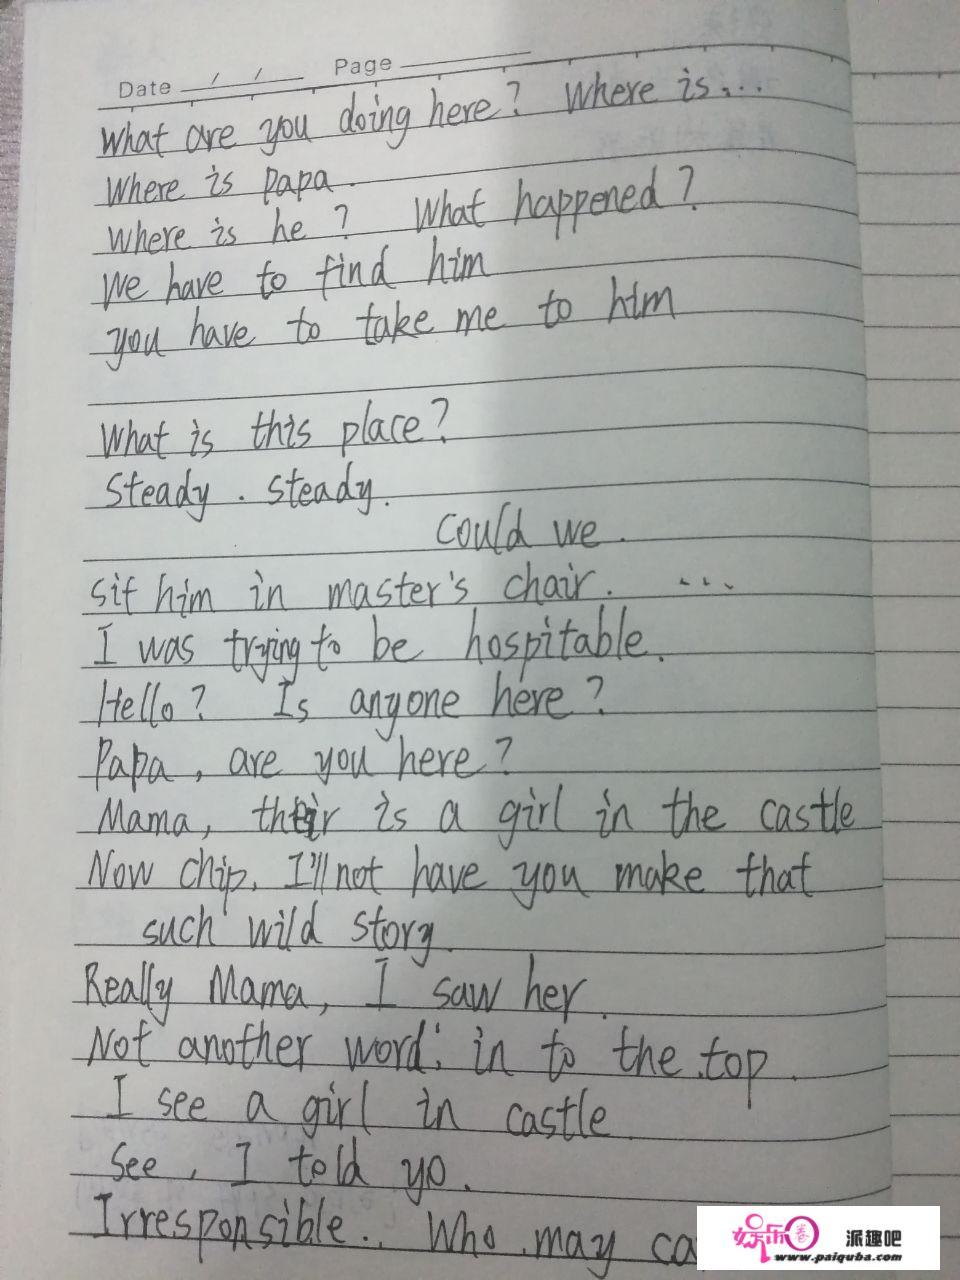 Date / / Page
What are you doing here? Where is...
Where is papa.
Where is he? What happened?
We have to find him
you have to take me to him
What is this place?
Steady. steady.
Could we.
sit him in master's chair. ...
I was trying to be hospitable.
Hello? Is anyone here?
Papa, are you here?
Mama, their is a girl in the castle
Now chip, I'll not have you make that
such wild story.
Really Mama, I saw her.
Not another word: in to the top.
I see a girl in castle
See, I told yo.
Irresponsible.. Who may ca
娱乐圈 派趣吧
www.paiquba.com